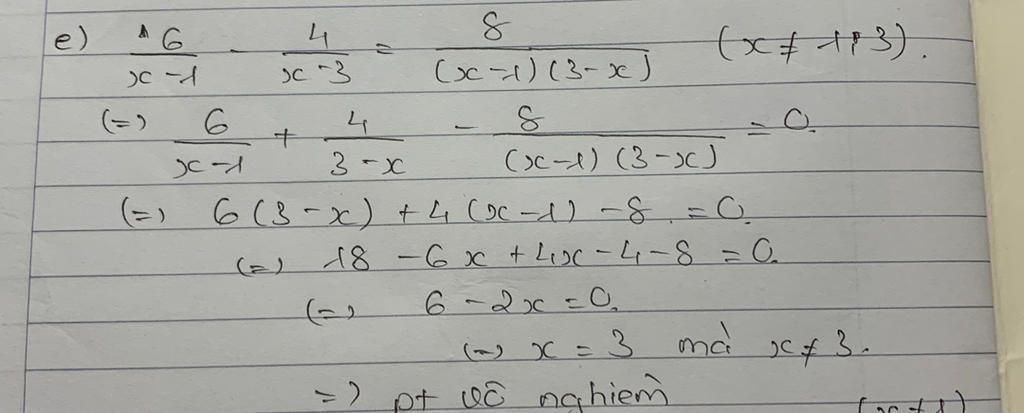 e) 6/(x-1) - 4/(x-3) = 8/((x-1)(3-x)) (x ≠ 1; 3).
(=) 6/(x-1) + 4/(3-x) - 8/((x-1)(3-x)) = 0.
(=) 6(3-x) + 4(x-1) - 8 = 0.
(=) 18 - 6x + 4x - 4 - 8 = 0.
(=) 6 - 2x = 0.
(=) x = 3 mà x ≠ 3.
=) pt vô nghiệm